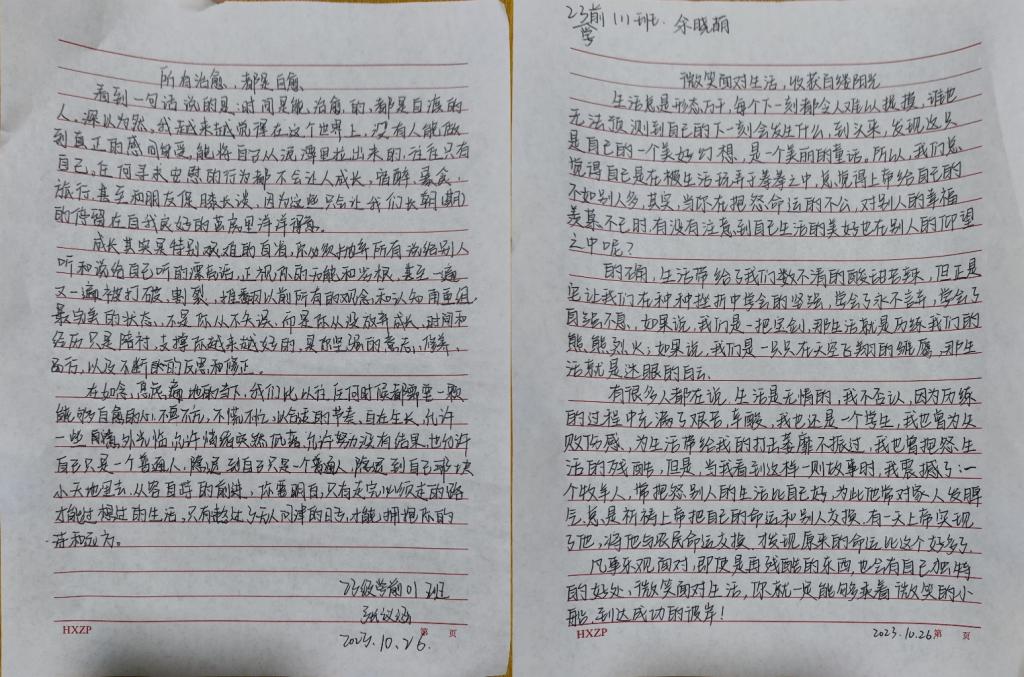 所有治愈，都是自愈
看到一句话说的是：时间是能治愈的，都是自渡的
人，深以为然。我越来越觉得在这个世界上，没有人能做
到真正的感同身受，能将自己从泥潭里拉出来的，往往只有
自己。任何寻求安慰的行为都不会让人成长，宿醉、暴食、
旅行，甚至和朋友促膝长谈，因为这些只会让我们长期(期)
的停留在自我良好的蓝房里洋洋得意。
成长其实是特别艰难的自省，你必须抛弃所有说给别人
听和说给自己听的漂亮话，正视你的无能和劣根，甚至一遍
又一遍被打破、割裂，推翻以前所有的观念和认知再重组。
最完美的状态，不是你从不失误，而是你从没放弃成长，时间和
经历只是陪衬，支撑你越来越好的，是你坚强的意志，修养、
品行，以及不断的反思和修正。
在如今，我们比以往任何时候都需要一颗
能够自愈的心，不卑不亢，不慌不忙，以合适的节奏，自在生长，允许
一些允许情绪突然低落，允许努力没有结果，也允许
自己只是一个普通人，隐遁到自己只是一个普通人，隐遁到自己那块
小天地里去，从容自得的前进，你要明白，只有走完必须走的路
才能过想过的生活，只有熬过了无人问津的日子，才能拥抱你的
诗和远方。
23级学前(1)班
2023.10.26
HXZP 第 页
23学前(1)班 余晓丽
微笑面对生活，收获自缕阳光
生活总是形态万千，每个下一刻都令人难以捉摸，谁也
无法预测到自己的下一刻会发生什么，到头来，发现这只
是自己的一个美好幻想，是一个美丽的童话。所以，我们总
觉得自己是在被生活玩弄于掌拳之中，总觉得上帝给自己的
不如别人多，其实，当你在抱怨命运的不公，对别人的幸福
羡慕不已时，有没有注意到自己生活的美好也在别人的仰望
之中呢？
的确，生活带给了我们数不清的酸甜苦辣，但正是
它让我们在种种挫折中学会的坚强，学会了永不言弃，学会了
自强不息，如果说，我们是一把宝剑，那生活就是历练我们的
熊熊烈火；如果说，我们是一只只在天空飞翔的雏鹰，那生
活就是迷眼的白云。
有很多人都在说，生活是无情的，我不否认，因为历练
的过程中充满了艰苦、辛酸，我也还是一个学生，我也曾为失
败伤感，为生活带给我的打击萎靡不振过，我也曾抱怨生
活的残酷，但是，当我看到这样一则故事时，我震撼了：一
个牧羊人，常抱怨别人的生活比自己好，为此他常对家人发脾
气，总是祈祷上帝把自己的命运和别人交换，有一天上帝实现
了他，将他与农民命运交换，才发现原来的命运比这个好多了。
凡事乐观面对，即使是再残酷的东西，也会有自己独特
的好处，微笑面对生活，你就一定能够乘着微笑的小
船，到达成功的彼岸！
HXZP 2023.10.26 第 页